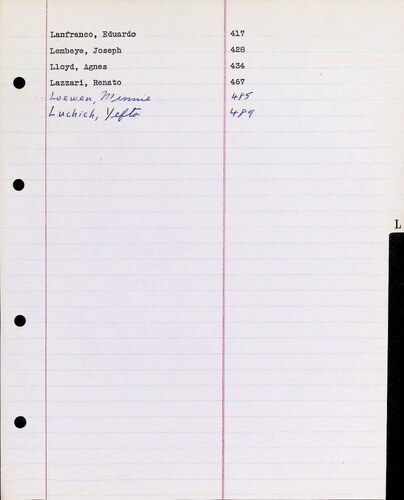 Lanfranco, Eduardo 417
Lembeye, Joseph 428
Lloyd, Agnes 434
Lazzari, Renato 467
Loewen, Minnie 485
Luchich, Yefto 489
L